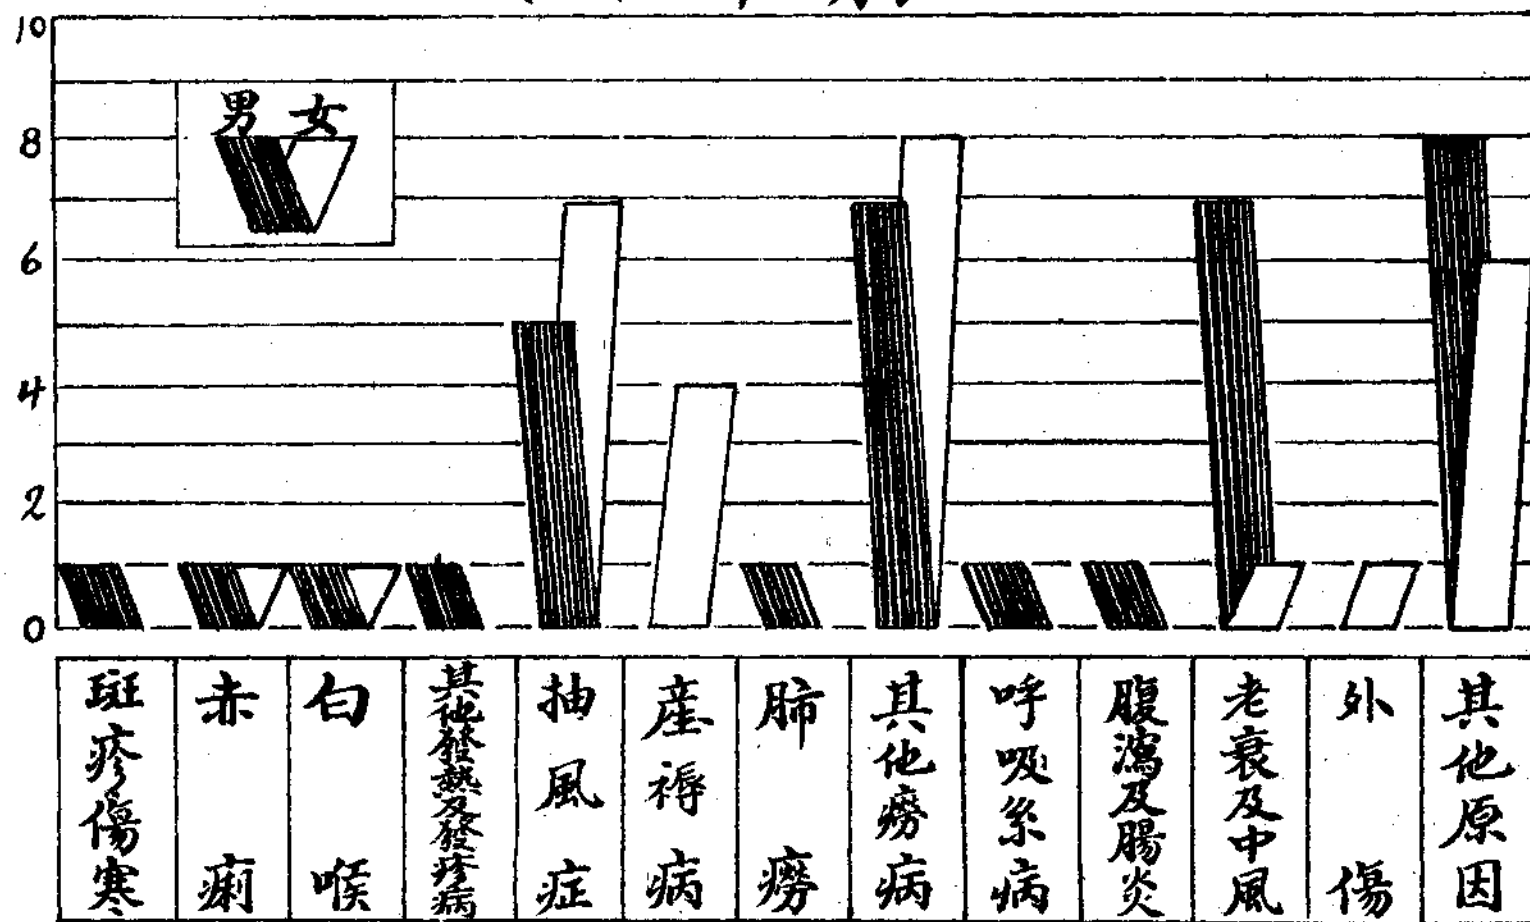 10
8
6
4
2
0
男 女
斑疹傷寒
赤痢
白喉
其他發熱及發疹病
抽風症
產褥病
肺癆
其他癆病
呼吸系病
腹瀉及腸炎
老衰及中風
外傷
其他原因